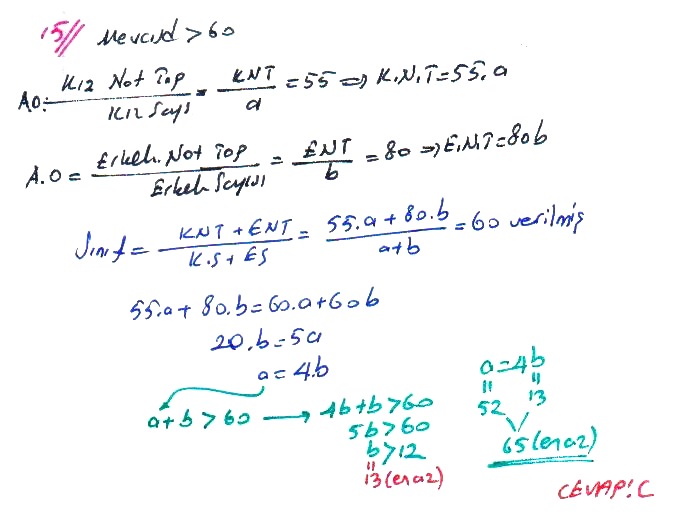 15// Mevcud > 60
A.O = Kız Not Top / Kız Sayı = KNT / a = 55 ⇒ K.N.T = 55.a
A.O = Erkek. Not Top / Erkek Sayısı = ENT / b = 80 ⇒ E.N.T = 80b
Sınıf = KNT + ENT / K.S + ES = 55.a + 80.b / a+b = 60 verilmiş
55.a + 80.b = 60.a + 60b
20.b = 5a
a = 4.b
a + b > 60 → 4b + b > 60
5b > 60
b > 12
13 (en az)
a = 4b
52 13
65 (en az)
CEVAP: C